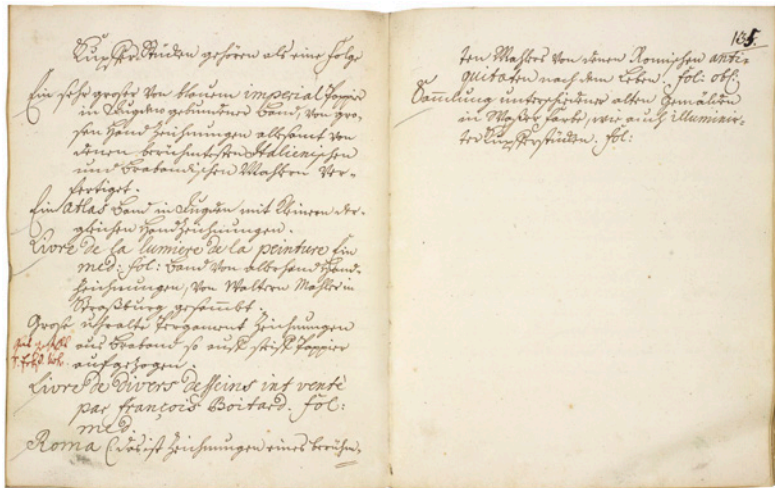 Kupffer Stücken gehören als eine folge
Ein sehr großer von blauem imperial Pappier
in Jugden gebundener Band, von gro-
ßen Handzeichnungen allesamt von
denen berühmtesten Italienischen
und Brabandischen Mahlern ver-
fertiget.
Ein Atlas Band in Jugden mit kleinern der-
gleichen Handzeichnungen.
Livre de la lumiere de la peinture Ein
med: fol: Band von allerhand Hand-
zeichnungen, von Waltern Mahler in
Straßburg gesammbt.
Große uhralte Pergament Zeichnungen
aus Braband so auff Pappier
aufgezogen.
Livre de divers desseins int venté
par françois Boitard. fol:
med.
Roma (: das ist Zeichnungen eines berühm-
135.
ten Mahlers von denen Romischen anti-
quitaten nach dem Leben. fol: obl:
Sammlung unterschiedener alten Gemälden
in Waßer farbe, wie auch illuminir-
ten Kupfferstücken. fol: